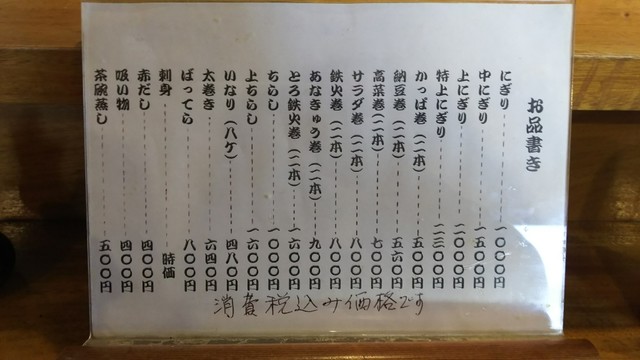 お品書き
にぎり 一〇〇〇円
中にぎり 一五〇〇円
上にぎり 二〇〇〇円
特上にぎり 二三〇〇円
かっぱ巻（二本） 五〇〇円
納豆巻（二本） 五六〇円
高菜巻（二本） 七〇〇円
サラダ巻（二本） 八〇〇円
鉄火巻（二本） 八〇〇円
あなきゅう巻（二本） 九〇〇円
とろ鉄火巻（二本） 一六〇〇円
ちらし 一〇〇〇円
上ちらし 一六〇〇円
いなり（八ケ） 四八〇円
太巻き 六四〇円
ばってら 八〇〇円
刺身 時価
赤だし 四〇〇円
吸い物 四〇〇円
茶碗蒸し 五〇〇円
消費税込み価格です